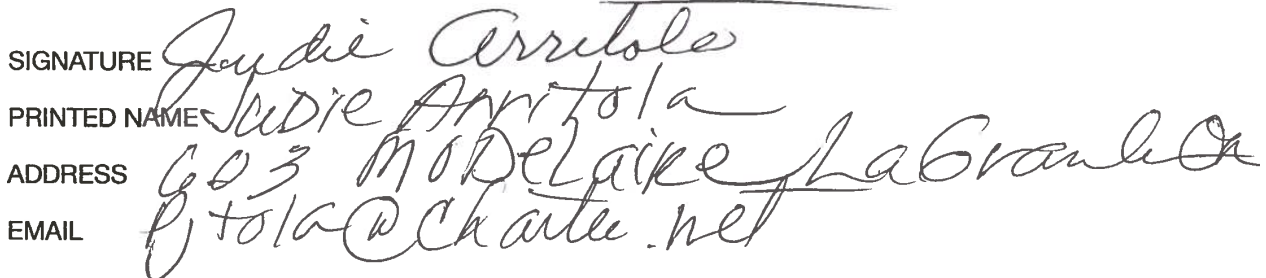 SIGNATURE Judie Arritola
PRINTED NAME JUDIE Arritola
ADDRESS 603 MODeLaire LaGrande Or
EMAIL Pjtola@charter.net